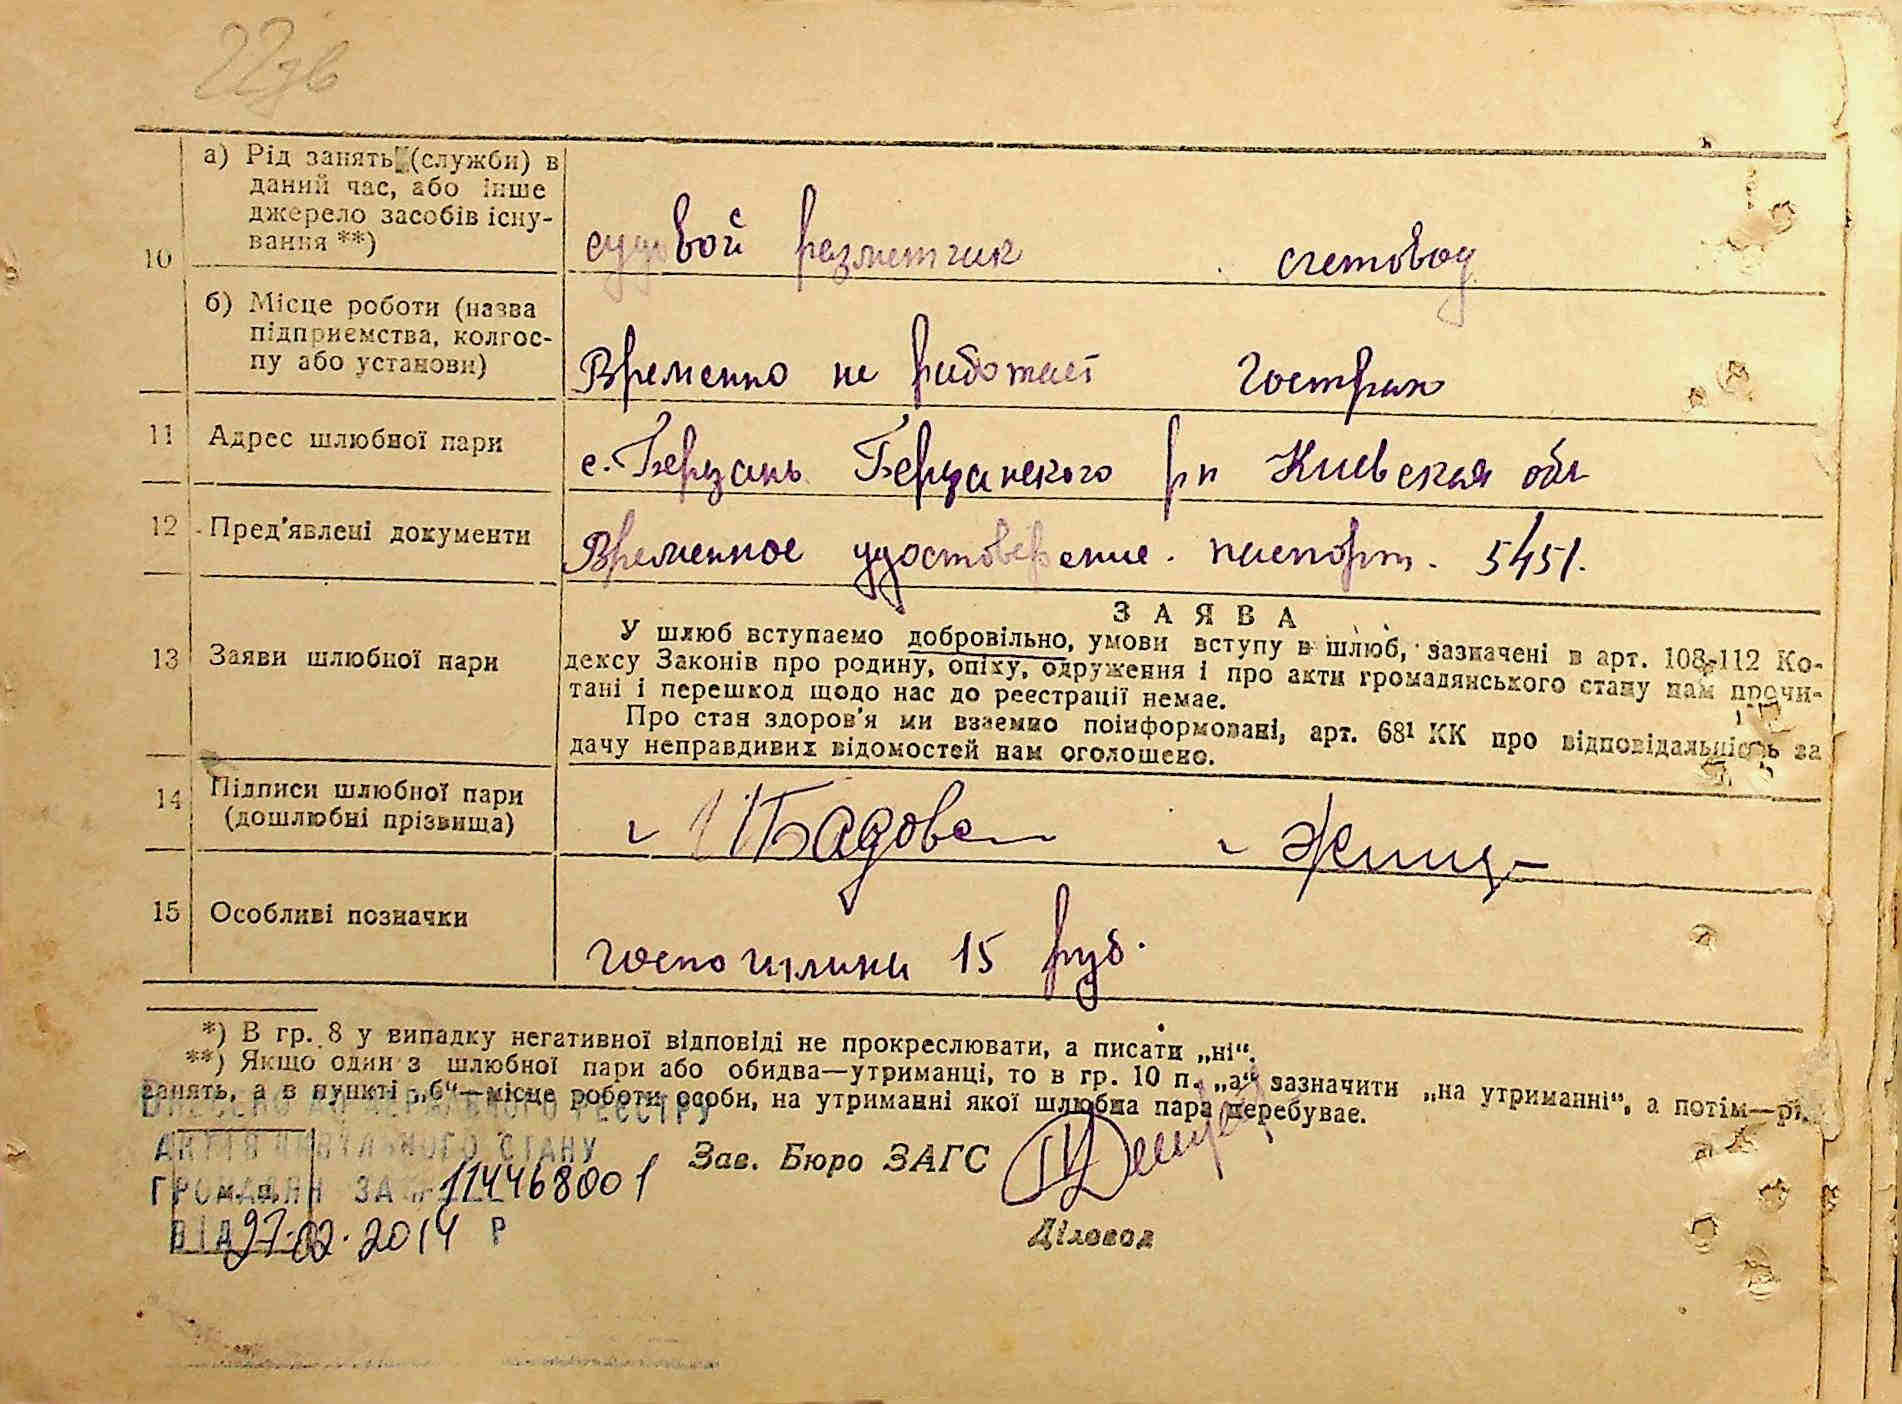 22зв
а) Рід занять (служби) в
даний час, або інше
джерело засобів існу-
вання **)
10
судовой разметчик счетовод
б) Місце роботи (назва
підприємства, колгос-
пу або установи)
Временно не работает Гострах
11 Адрес шлюбної пари
с. Березань Березанского рн Киевская обл
12 Пред'явлені документи
Временное удостоверение. паспорт. 5451.
ЗАЯВА
13 Заяви шлюбної пари
У шлюб вступаємо добровільно, умови вступу в шлюб, зазначені в арт. 108-112 Ко-
дексу Законів про родину, опіку, одруження і про акти громадянського стану нам прочи-
тані і перешкод щодо нас до реєстрації немає.
Про стан здоров'я ми взаємно поінформовані, арт. 68¹ КК про відповідальність за
дачу неправдивих відомостей нам оголошено.
14 Підписи шлюбної пари
(дошлюбні прізвища)
15 Особливі позначки
госпошлини 15 руб.
*) В гр. 8 у випадку негативної відповіді не прокреслювати, а писати „ні“.
**) Якщо один з шлюбної пари або обидва—утриманці, то в гр. 10 п. „а“ зазначити „на утриманні“, а потім—рід
занять, а в пункті „б“—місце роботи особи, на утриманні якої шлюбна пара перебуває.
ВНЕСЕНО ДО ДЕРЖАВНОГО РЕЄСТРУ
АКТІВ ЦИВІЛЬНОГО СТАНУ
ГРОМАДЯН ЗА № 114468001
ВІД 27.02.2014 Р
Зав. Бюро ЗАГС
Діловод